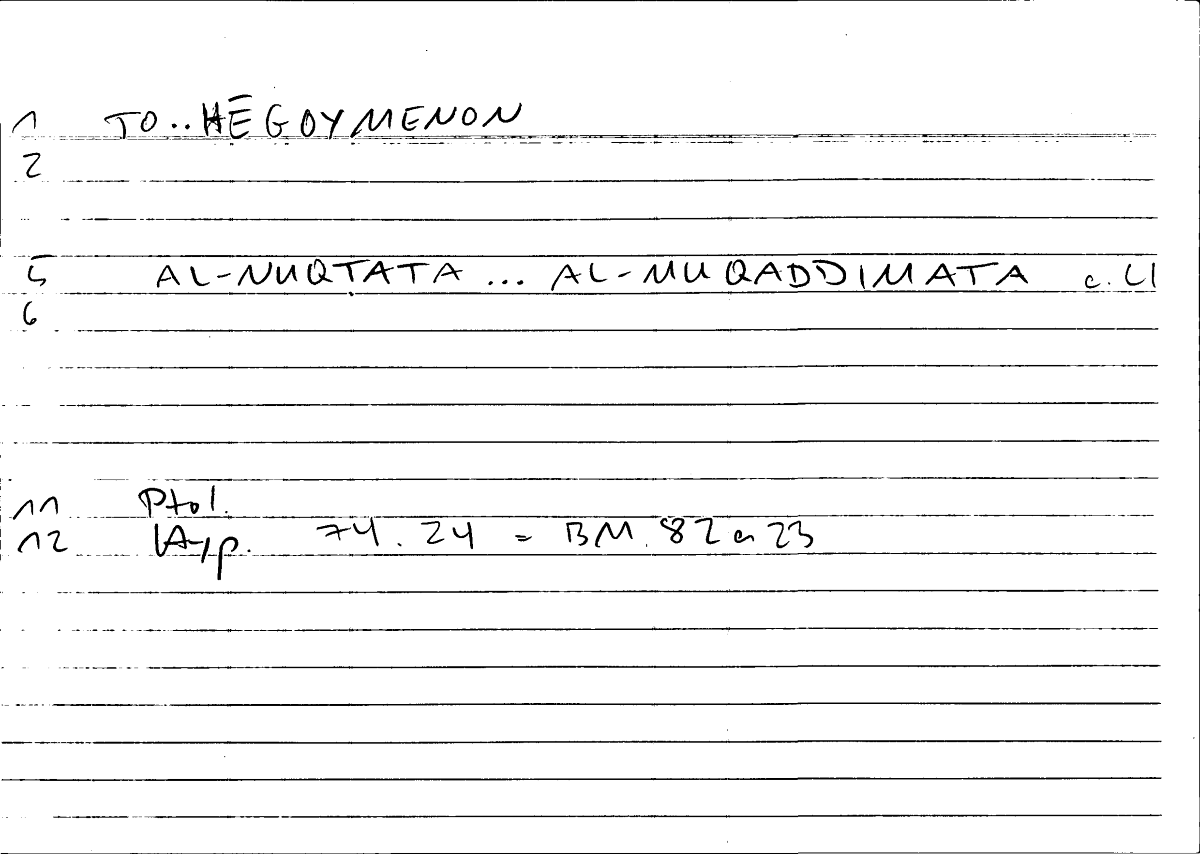 1 TO..HĒGOYMENON
2
5 AL-NUQṬATA ... AL-MUQADDIMATA c. LI
6
11 Ptol.
12 Hyp. 74.24 = BM. 82a23